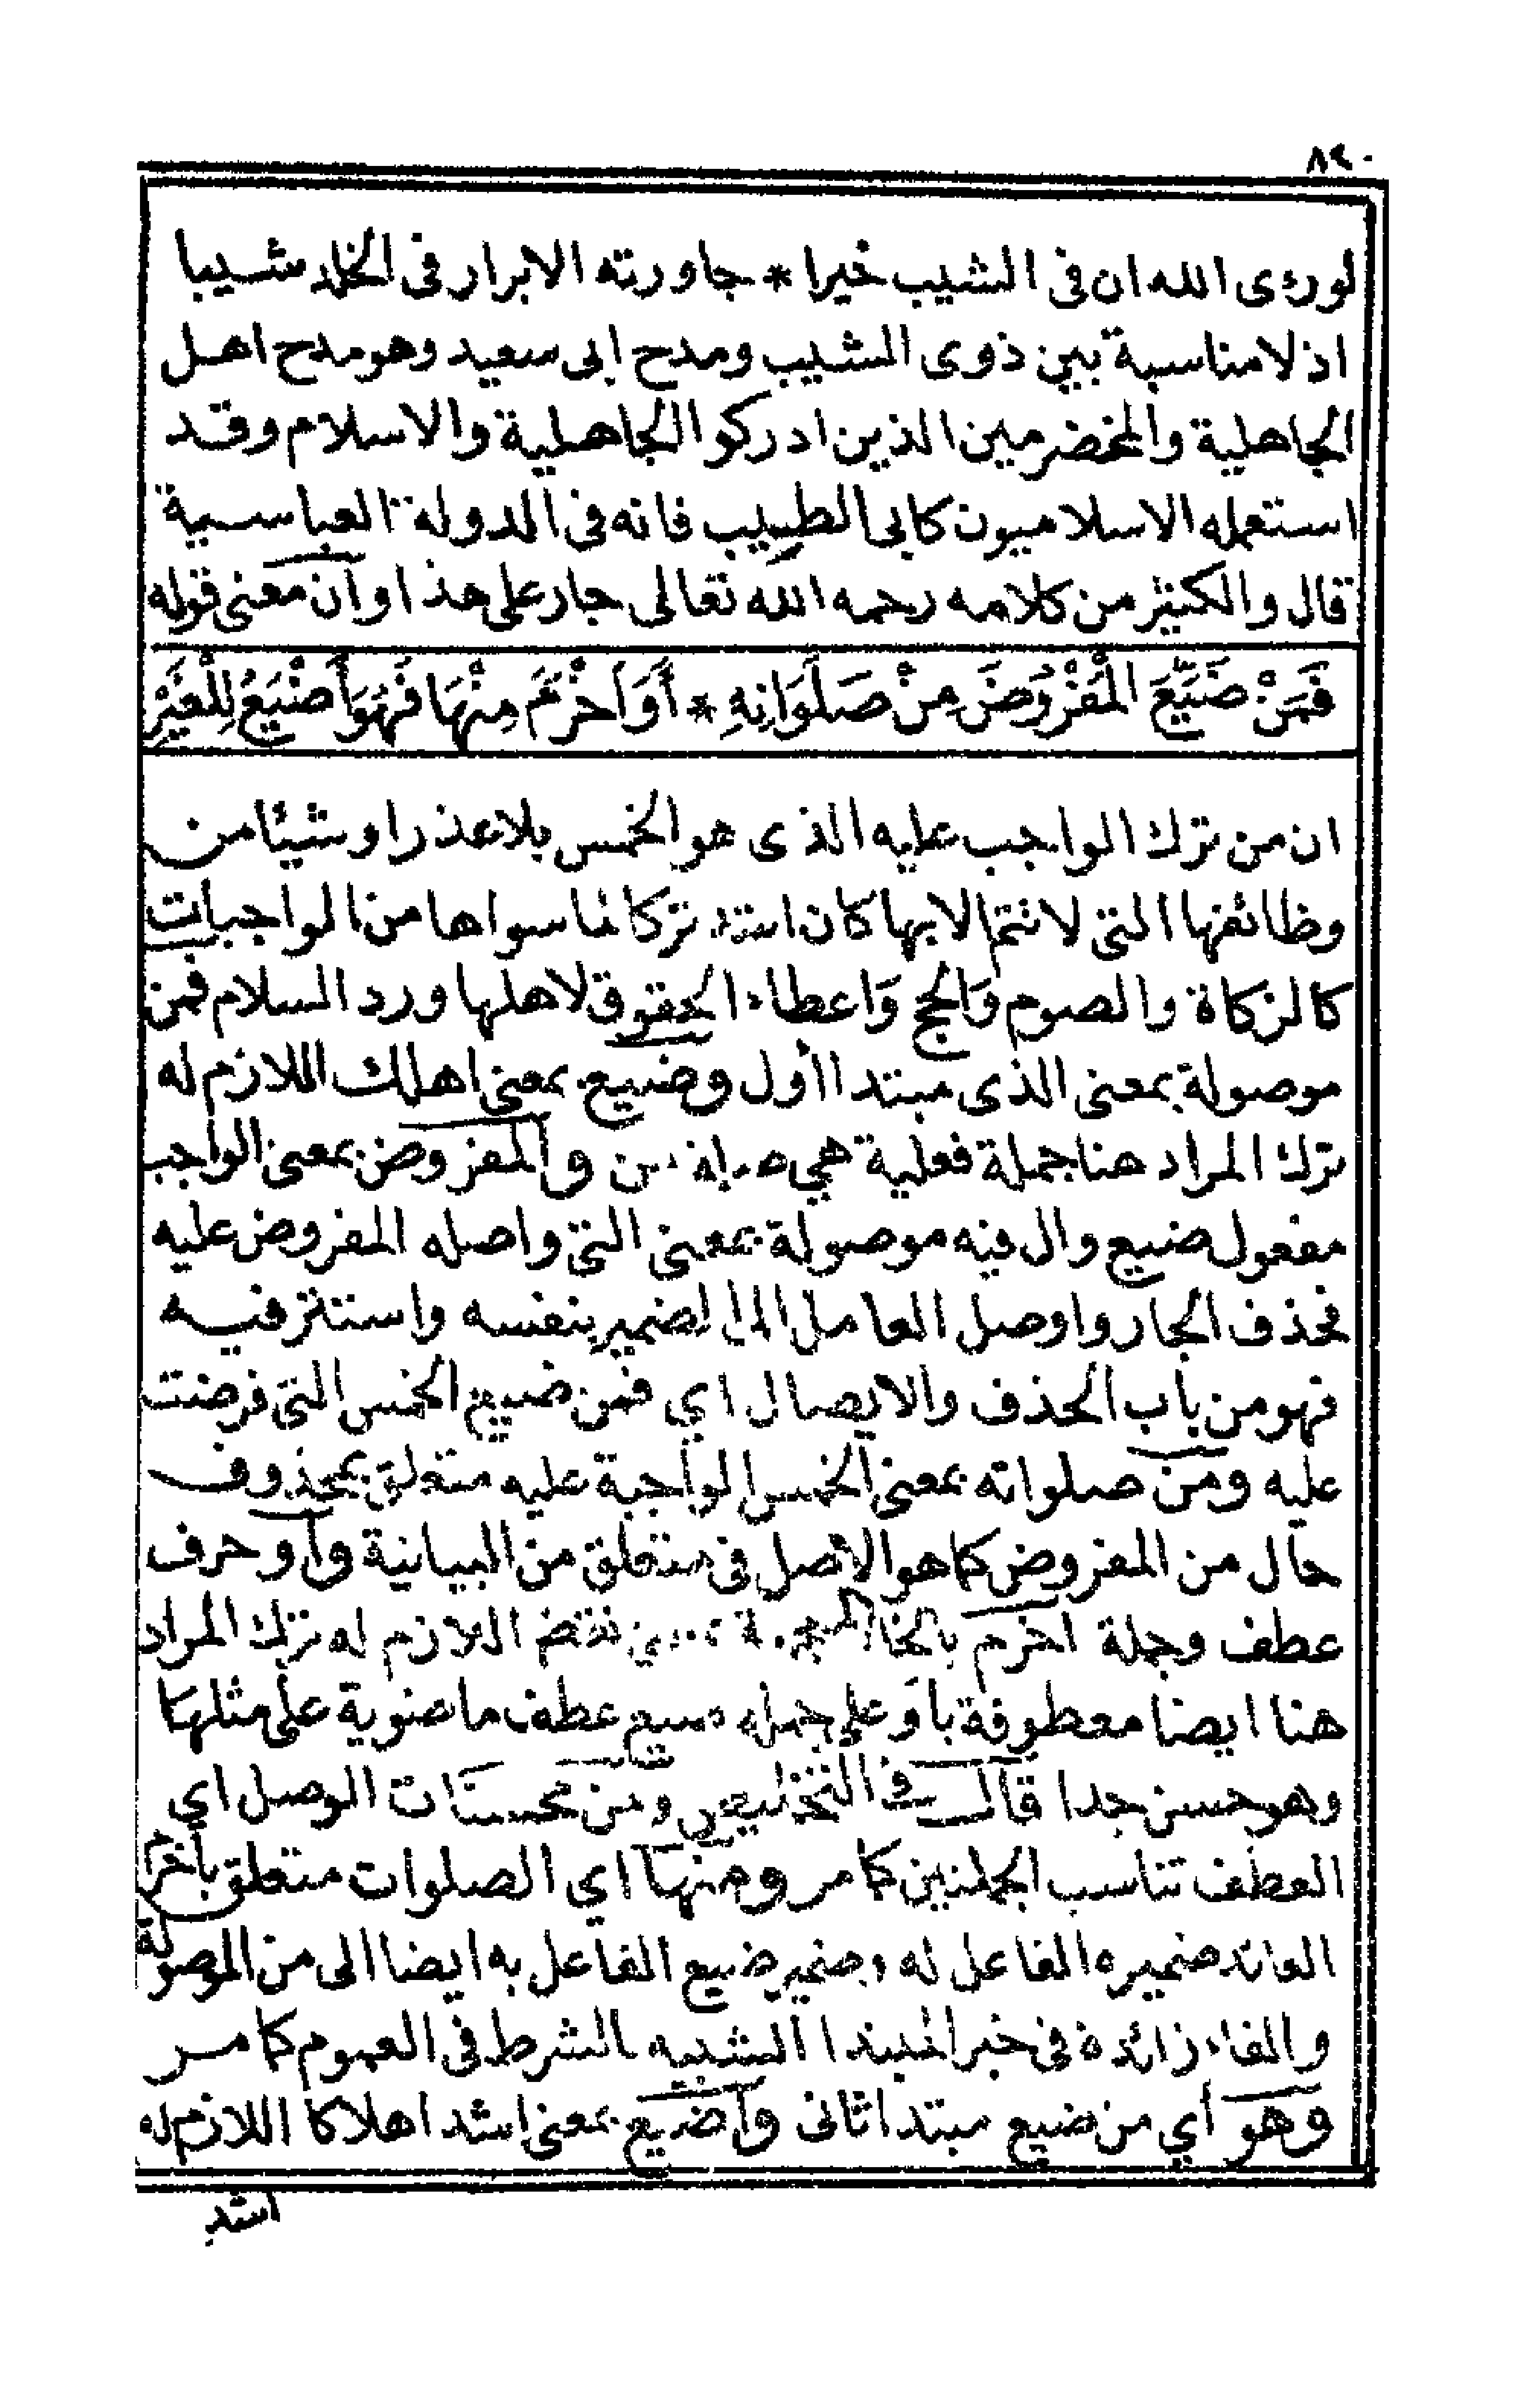 ٨٢٠
لورءى الله ان فى الشيب خيرا * جاورته الابرار فى الخلد شيبا
اذ لا مناسبة بين ذوى الشيب ومدح ابى سعيد وهو مدح اهل
الجاهلية والمخضرمين الذين ادركوا الجاهلية والاسلام وقد
استعمله الاسلاميون كابى الطيب فانه فى الدولة العباسية
قال والكثير من كلامه رحمه الله تعالى جار على هذا وان معنى قوله
فَمَنْ ضَيَّعَ الْمَفْرُوضَ مِنْ صَلَوَاتِهِ * أَوَ اَخْرَمَ مِنْهَا فَهُوَ أَضْيَعُ لِلْغَيْرِ
ان من ترك الواجب عليه الذى هو الخمس بلا عذر او شيئا من
وظائفها التى لا تتم الا بها كان اشد تركا لما سواها من الواجبات
كالزكاة والصوم وَالحج وَاعطاء الحقوق لاهلها ورد السلام فمن
موصولة بمعنى الذى مبتدا أول وضيع بمعنى اهلك اللازم له
ترك المراد هنا جملة فعلية هي صلة من والمفروض بمعنى الواجب
مفعول ضيع وال فيه موصولة بمعنى التى واصله المفروض عليه
فحذف الجار واوصل العامل الى الضمير بنفسه واستتر فيه
فهو من باب الحذف والايصال اي فمن ضيع الخمس التى فرضت
عليه ومن صلواته بمعنى الخمس الواجبة عليه متعلق بمحذوف
حال من المفروض كما هو الاصل فى متعلق من البيانية وأو حرف
عطف وجملة اخرم بالخا المعجمة بمعنى نقض اللازم له ترك المراد
هنا ايضا معطوفة باَو على جملة ضيع عطف ماضوية على مثلها
وهو حسن جدا قال فى التخليص ومن محسنات الوصل اي
العطف تناسب الجملتين كما مر ومنها اي الصلوات متعلق بأخرم
العائد ضميره الفاعل له وضمير ضيع الفاعل به ايضا الى من الموصولة
والفاء زائدة فى خبر المبتدا الشبيه بالشرط فى العموم كما مر
وهو أي من ضيع مبتدا ثانى وأضيع بمعنى اشد اهلاكا اللازم له
اشد